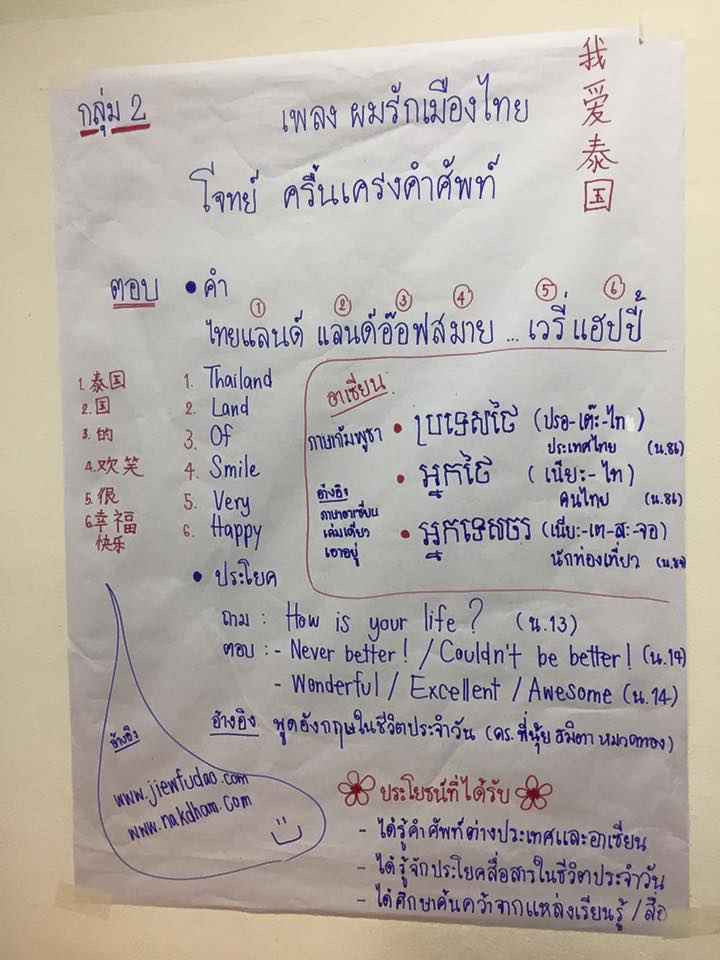 กลุ่ม 2
เพลง ผมรักเมืองไทย
我爱泰国
โจทย์ ครื้นเครงคำศัพท์
ตอบ • คำ
① ② ③ ④ ⑤ ⑥
ไทยแลนด์ แลนด์อ๊อฟสมาย ... เวรี่ แฮปปี้
1. 泰国
2. 国
3. 的
4. 欢笑
5. 很
6. 幸福
快乐
1. Thailand
2. Land
3. Of
4. Smile
5. Very
6. Happy
อาเซียน
ภาษากัมพูชา • ប្រទេសថៃ (ปรอ-เต๊ะ-ไท)
ประเทศไทย (น.86)
• អ្នកថៃ (เนียะ-ไท)
คนไทย (น.86)
• អ្នកទេសចរ (เนียะ-เต-สะ-จอ)
นักท่องเที่ยว
อ้างอิง
ภาษาอาเซียน
เล่มเดียว
เอาอยู่
• ประโยค
ถาม : How is your life ? (น.13)
ตอบ : - Never better! / Couldn't be better! (น.14)
- Wonderful / Excellent / Awesome (น.14)
อ้างอิง พูดอังกฤษในชีวิตประจำวัน (ดร.พี่นุ้ย สมิตา หมวดทอง)
อ้างอิง
www.jiewfudao.com
www.nakdham.com
ประโยชน์ที่ได้รับ
- ได้รู้คำศัพท์ต่างประเทศและอาเซียน
- ได้รู้จักประโยคสื่อสารในชีวิตประจำวัน
- ได้ศึกษาค้นคว้าจากแหล่งเรียนรู้ / สื่อ